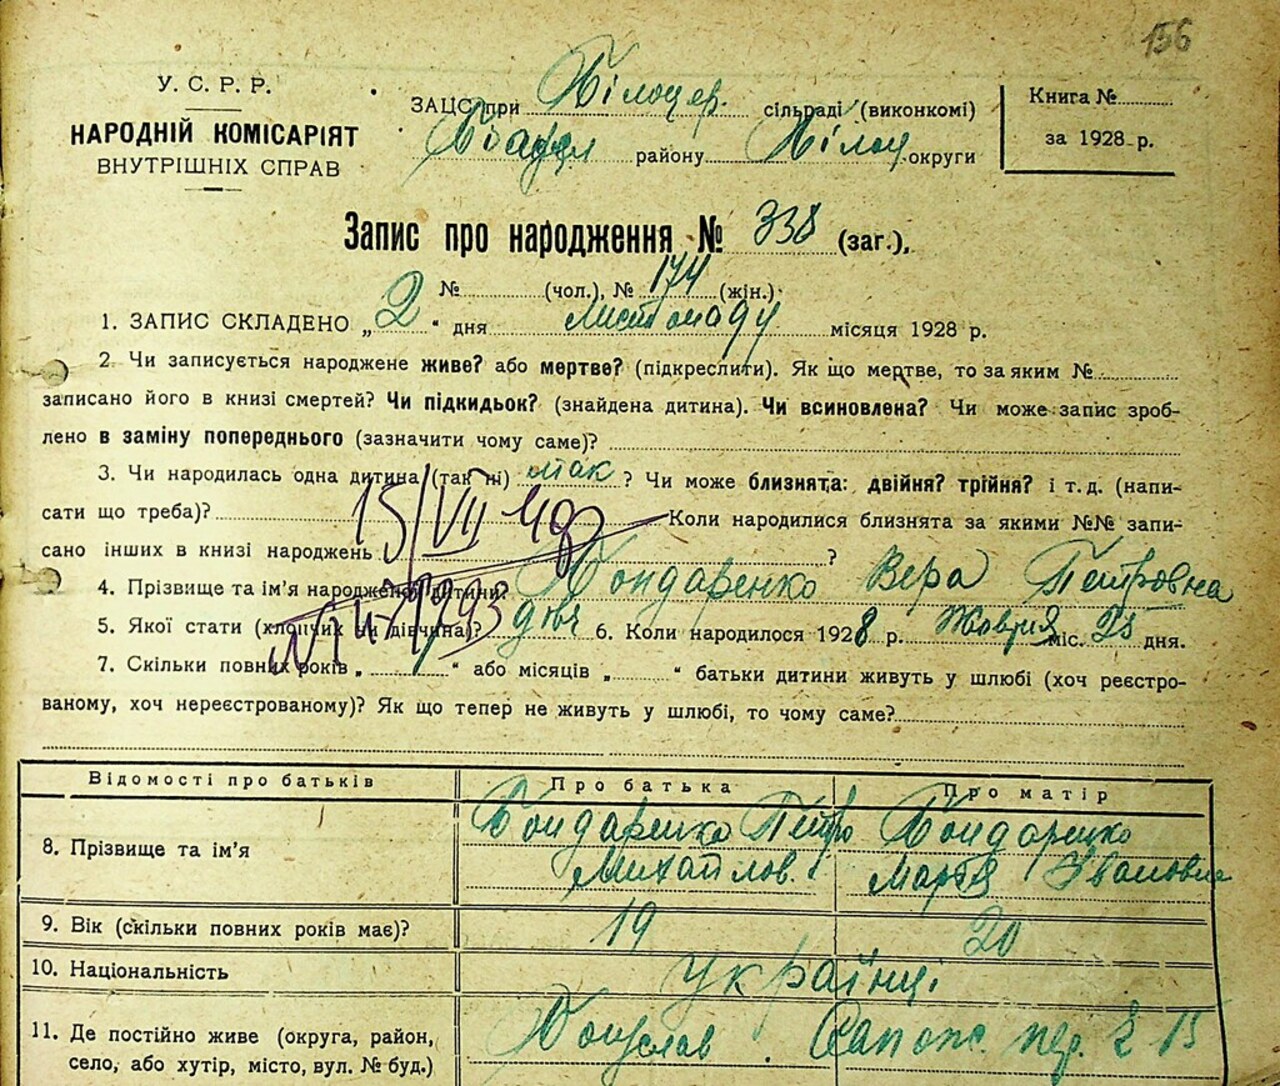 156
У. С. Р. Р.
НАРОДНІЙ КОМІСАРІЯТ
ВНУТРІШНІХ СПРАВ
ЗАЦС при Білоцер. сільраді (виконкомі)
району Білоц. округи
Книга №
за 1928 р.
Запис про народження № 338 (заг.),
№ (чол.), № 174 (жін.)
1. ЗАПИС СКЛАДЕНО „ 2 “ дня листопаду місяця 1928 р.
2. Чи записується народжене живе? або мертве? (підкреслити). Як що мертве, то за яким №
записано його в книзі смертей? Чи підкидьок? (знайдена дитина). Чи всиновлена? Чи може запис зроб-
лено в заміну попереднього (зазначити чому саме)?
3. Чи народилась одна дитина (так ні) так ? Чи може близнята: двійня? трійня? і т. д. (напи-
сати що треба)? Коли народилися близнята за якими №№ запи-
сано інших в книзі народжень ?
15/VII 49
4. Прізвище та ім’я народженої дитини? Бондаренко Вера Петровна
5. Якої статі (хлопчик чи дівчина)? дівч 6. Коли народилося 1928 р. Жовтня міс. 25 дня.
7. Скільки повних років „ 1 “ або місяців „ “ батьки дитини живуть у шлюбі (хоч реєстро-
ваному, хоч нереєстрованому)? Як що тепер не живуть у шлюбі, то чому саме?
Відомості про батьків Про батька Про матір
8. Прізвище та ім’я Бондаренко Петро Михайлов. Бондаренко Марія Ивановна
9. Вік (скільки повних років має)? 19 20
10. Національність українці
11. Де постійно живе (округа, район,
село, або хутір, місто, вул. № буд.)